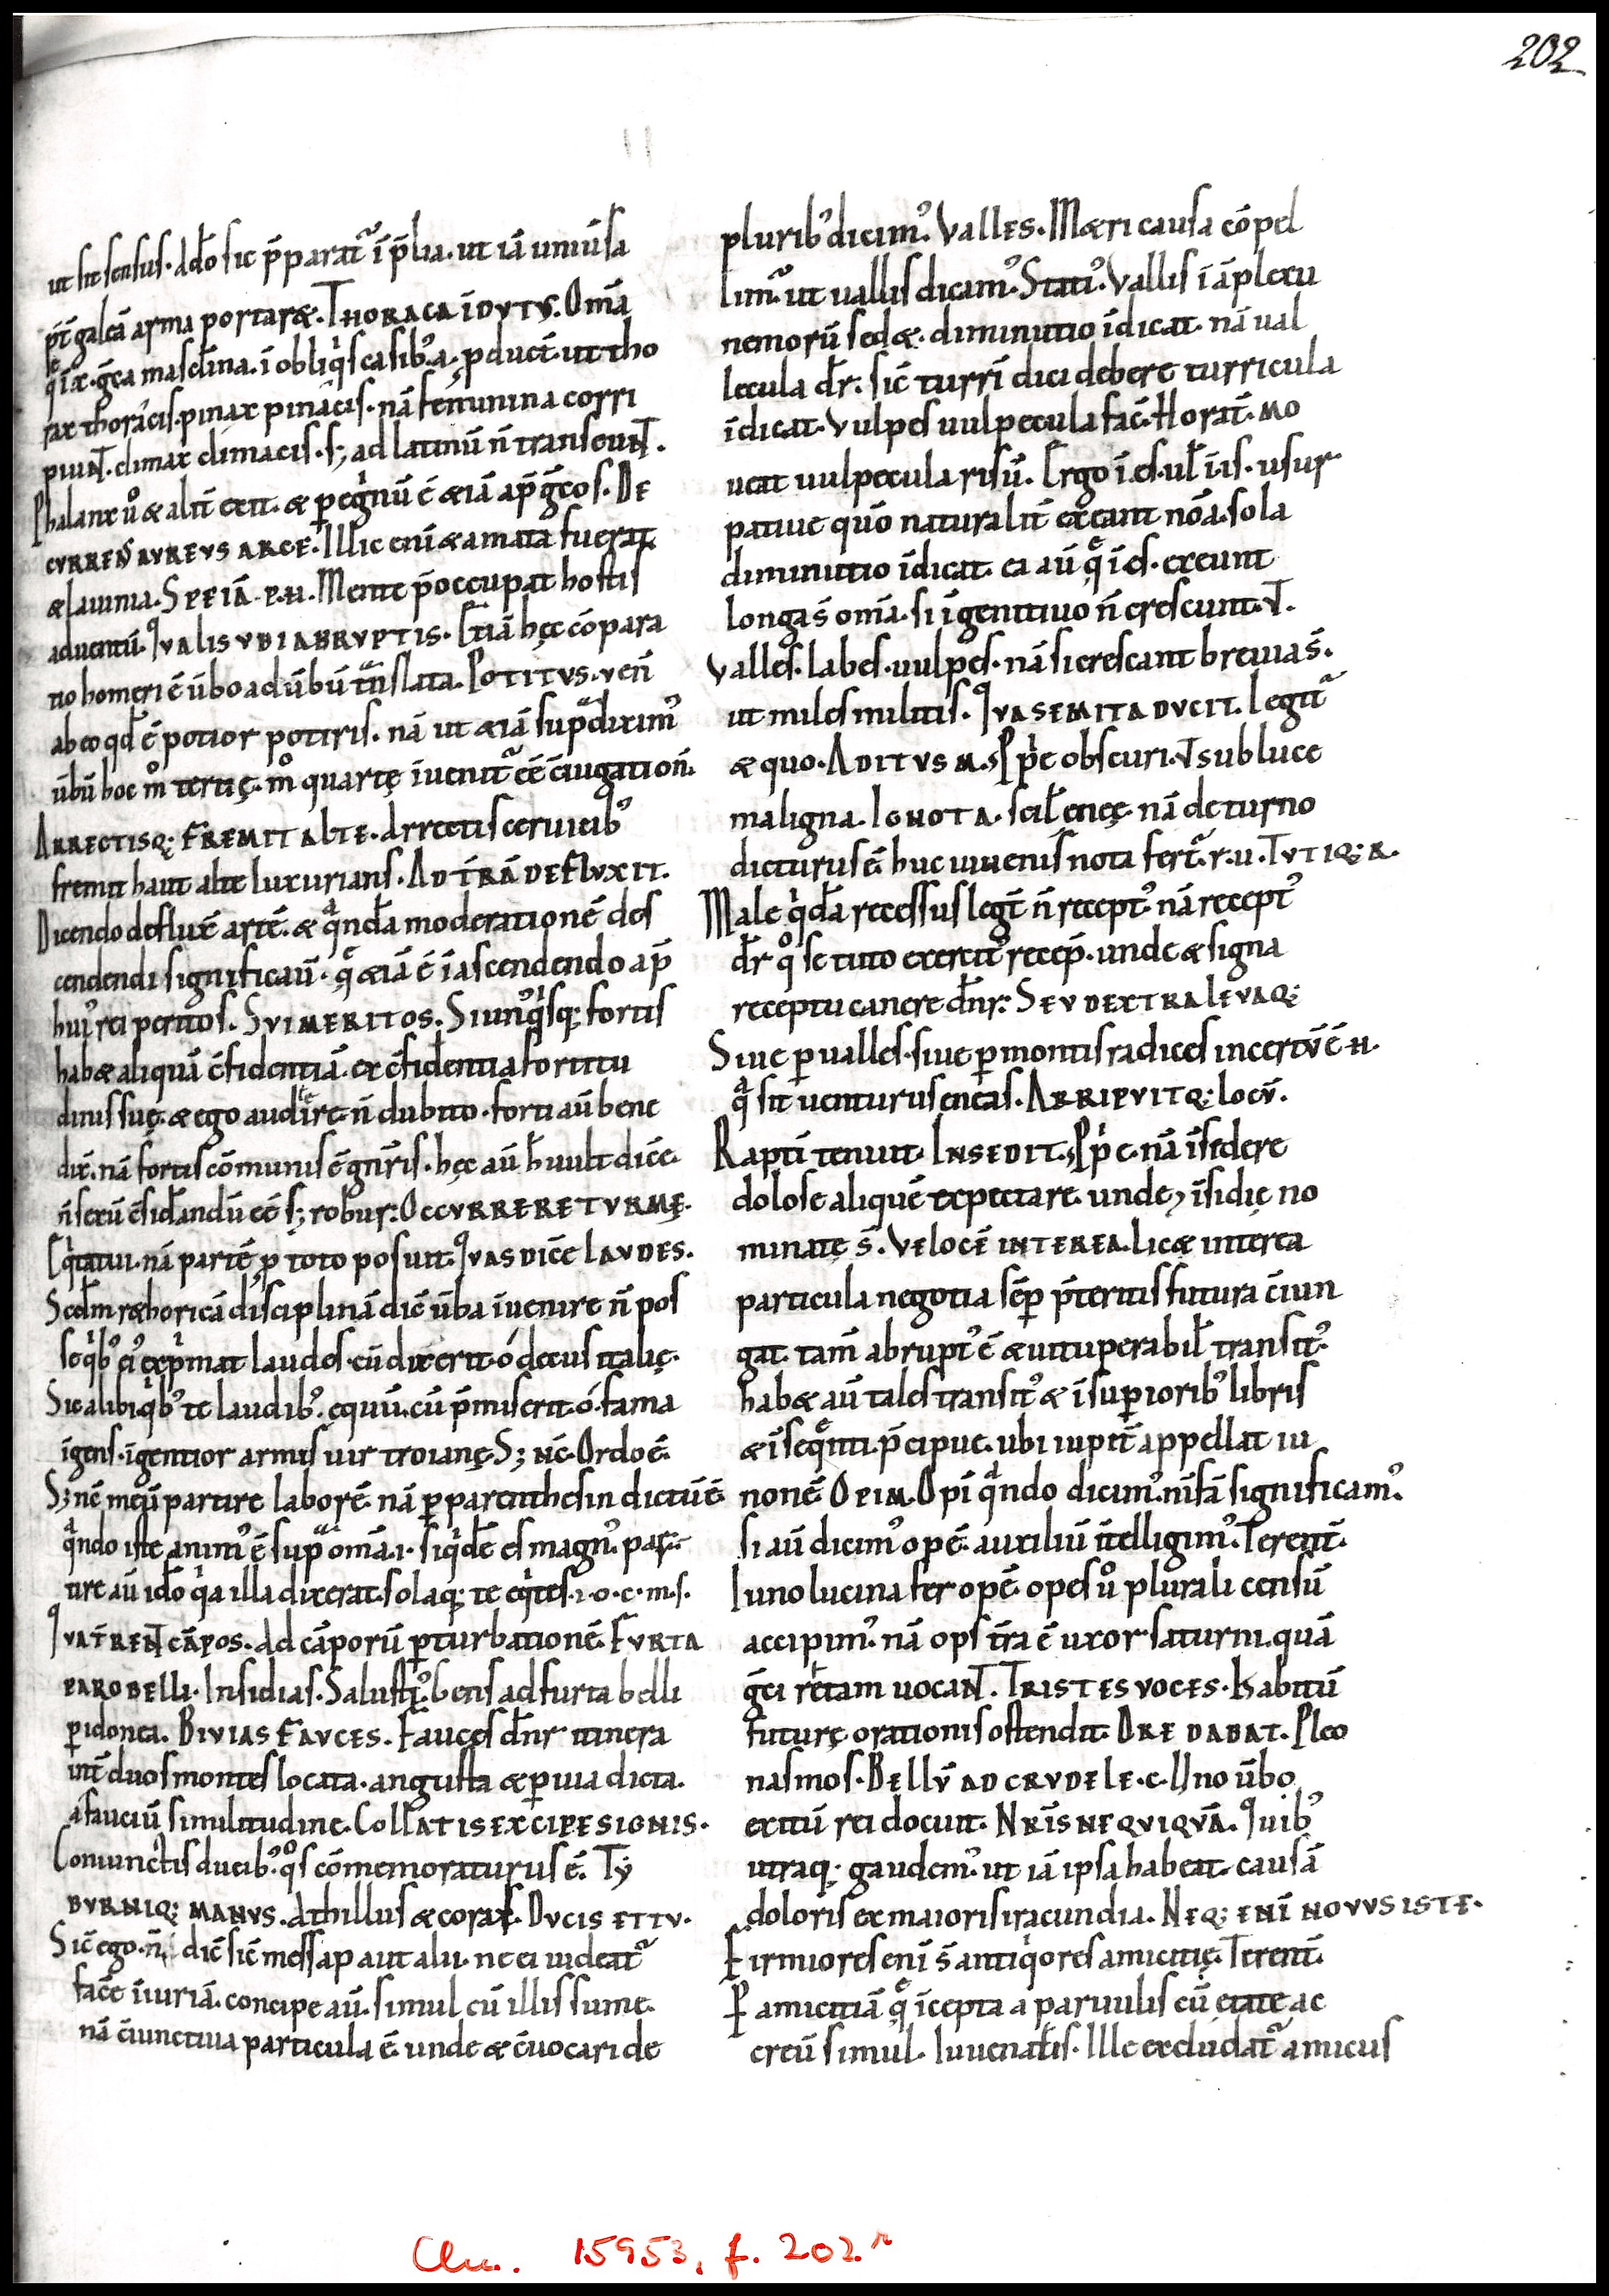 202
ut sit sensus. adeo sic p̄paratᷣ ī p̄lia. ut iā uniūsa
p̄t̄ galeā arma portaræ. THORACA īDVTVS. Om̄a
q̄ īx. gͫca masc̄lina. ī obliqͥs casibꝰ .a. ꝓducūt̄. ut tho
rax thorácis. pinax pinácis. nā feminina corri
piuNT. climax climácis. sꝫ ad latinū ñ transeuNT.
Phalanx ůo & alit̄ exit. & ꝑegͥnū ē & iā ap̄ gͫcos. DE
CVRRENS AVREVS ARCE. Illic enī & amata fuerat
& lauinia. SPEIĀ. P. H. Mente p̄occupat hostis
aduentū. QVALIS VBI ABRVPTIS. Etiā hęc cōpara
tio homeri ē ūbo ad ūbū tᷓnslata. POTITVS. ueñ
ab eo qđ ē potior potiris. nā ut & iā supᷓ diximꝰ
ūbū hoc m̊ tertię. m̊ quartę īuenitᷣ eē c̄iugation̄.
ARRECTISQ; FREMIT ALTE. Arrectis ceruicibꝰ
fremit haut alte luxurians. AD T̄RĀ DEFLVXIT.
Dicendo defluxē artē. & qᷓndā moderationē des
cendendi significaū. qͤ & iā ē ī ascendendo ap̄
huiꝰ rei peritos. SVI MERITOS. Si unꝰqͥsq; fortis
habæ aliquā c̄fidentiā. ex c̄fidentia fortitu
dinis suę. & ego audire ñ dubito. forti aū bene
dix̄. nā fortis cōmunis ē gn̄ris. hęc aū h̄ uult dic̄e.
ñ sexū c̄siđandū eē sꝫ robur: OCCVRRERE TVRMĘ.
Eqͥtatui. nā partē ꝓ toto posuit. QVAS DIC̄E LAVDES.
Scđm ræhoricā disciplinā dic̄ ūba īuenire ñ pos
se qͥbꝰ eiꝰ exp̄mat laudes. cū dixerit. ó decus italię.
Sic alibi qͥbꝰ te laudibꝰ ęquū. cū p̄miserit. ó fama
īgens. īgentior armis uir troianę. Sꝫ NC̄. Ordo ē.
Sꝫ nc̄ mecū partire laborē. nā ꝑ parenthesin dictū ē
qᷓndo iste animꝰ ē supᷓ om̄a. i. siqͥdē es magnꝰ. par
tire aū id̄o qͥa illa dixerat. solaq; te eqͥtes. i. o. c. m. s.
QVATIRENT CĀPOS. Ad cāporū ꝑturbationē. FVRTA
PARO BELLI. Insidias. Salustiꝰ. gens ad furta belli
ꝑidonea. BIVIAS FAVCES. Fauces d̄nr itinera
int̄ duos montes locata. angusta & ꝑuia dicta.
a fauciū similitudine. COLLATIS EXCIPE SIGNIS.
Coniunctis ducibꝰ. qͦs cōmemoraturus ē. TY
BVRNIQ; MANVS. Athillus & coras. DVCIS ET TV.
Sic̄ ego. ñ dic̄ sic̄ messap aut alii. ne ei uideatᷣ
fac̄e īiuriā. concipe aū. simul cū illis sume.
nā c̄iunctiua particula ē. unde & c̄uocari de
pluribꝰ dicimꝰ. VALLES. Mætri causa cōpel
limᷣ ut uallis dicamꝰ. Statiꝰ. Vallis ī āplexu
nemorū sedæ. diminutio īdicat. nā ual
lecula d̄r. sic̄ turrī dici debere turricula
īdicat. Vulpes uulpecula fac̄. Horat̄. MO
ueat uulpecula risū. Ergo ī es. ul̄ ī is. usur
patiue quō naturalit̄ exeant nōa. sola
diminutio īdicat. ea aū qͤ ī es. exeunt
longa s̄ om̄a. si ī genitiuo ñ crescunt. ut.
Valles. labes. uulpes. nā si crescant breuia s̄.
ut miles militis. QVA SEMITA DVCIT. Legitᷣ
& quo. ADITVS M. Ꝓpͥe obscuri. ut sub luce
maligna. IGNOTA. scil̄ eneę. nā de turno
dicturus ē. huc iuuenis nota fertᷣ. r. u. TVTIQ; R.
Male qͥdā recessus legt̄ ñ receptꝰ. nā receptꝰ
d̄r qͦ se tuto exercitꝰ recep̄. unde & signa
receptui canere d̄nr: SEV DEXTRA LEVAQ;
Siue ꝑ ualles. siue ꝑ montis radices incertū ē H.
qᷓ sit uenturus eneas. ARRIPVITQ; LOCV̄.
Raptī tenuit. INSEDIT. Ꝓpͥe. nā īsedere
dolose aliquē expectare. unde & īsidię no
minatę s̄. VELOCĒ INTEREA. Licæ interea
particula negotia sēꝑ p̄teritis futura c̄iun
gat. tam̄ abruptꝰ ē & uituperabil̄ transitꝰ.
habæ aū tales transitꝰ & ī superioribꝰ libris
& ī seqͤnti. p̄cipue. ubi iupit̄ appellat iu
nonē. OPIM. Opī qᷓndo dicimꝰ. nīfā significamꝰ.
si aū dicimꝰ opē. auxiliū ītelligimꝰ. Terent̄.
Iuno lucina fer opē. opes ůo plurali censū
accipimꝰ. nā ops t̄ra ē uxor saturni. quā
gͫci retam uocaNT. TRISTES VOCES. Habitū
futurę orationis ostendit. ORE DABAT. Pleo
nasmos. BELLV̄ AD CRVDELE. C. Uno ūbo
exitū rei docuit. NR̄IS NEQVIQVĀ. Quibꝰ
utraq; gaudemꝰ. ut iā ipsa habeat causā
doloris ex maioris iracundia. NEQ; ENĪ NOVVS ISTE.
Firmiores enī s̄ antiqͥores amicitię. Terent̄.
Ꝑ amicitiā qͤ īcepta a paruulis cū etate ac
creū simul. Iuuenal̄is. Ille excludatᷣ amicus
Clm. 15953, f. 202.r